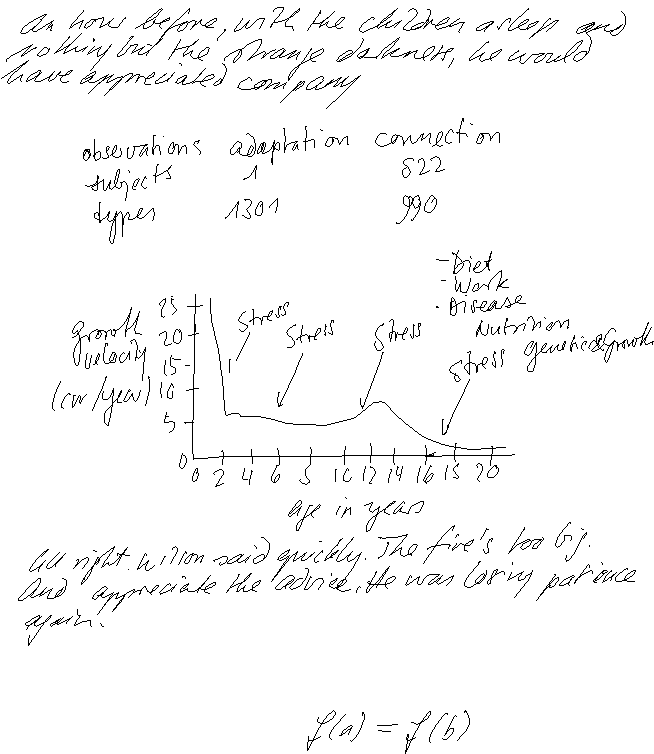 An hour before, with the children asleep and
nothing but the strange darkness, he would
have appreciated company
observations adaptation connection
subjects 1 822
types 1301 990
- Diet
- Work
- Disease
Nutrition
genetics growth
growth
velocity
(cm/year)
25
20
15
10
5
0
Stress
Stress
Stress
Stress
0 2 4 6 8 10 12 14 16 18 20
age in years
All right. Wilson said quickly. The fire's too big.
And appreciate the advice. He was losing patience
again.
f(a) = f(b)